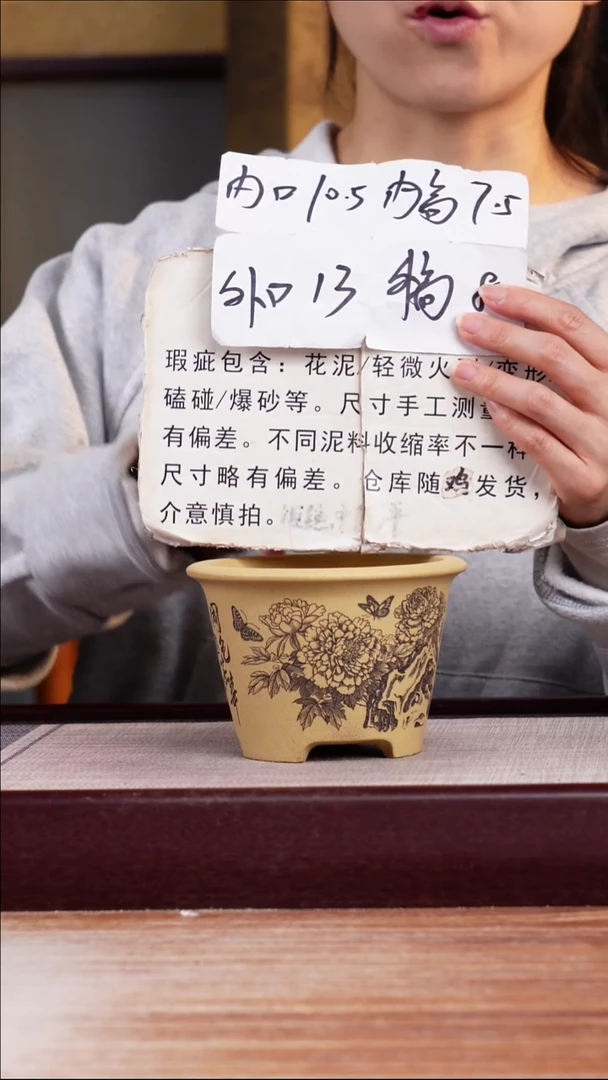 内口10.5 内高7.5
外口13 外高8
瑕疵包含：花泥/轻微火 /变形
磕碰/爆砂等。尺寸手工测量
有偏差。不同泥料收缩率不一样
尺寸略有偏差。仓库随鸡发货，
介意慎拍。